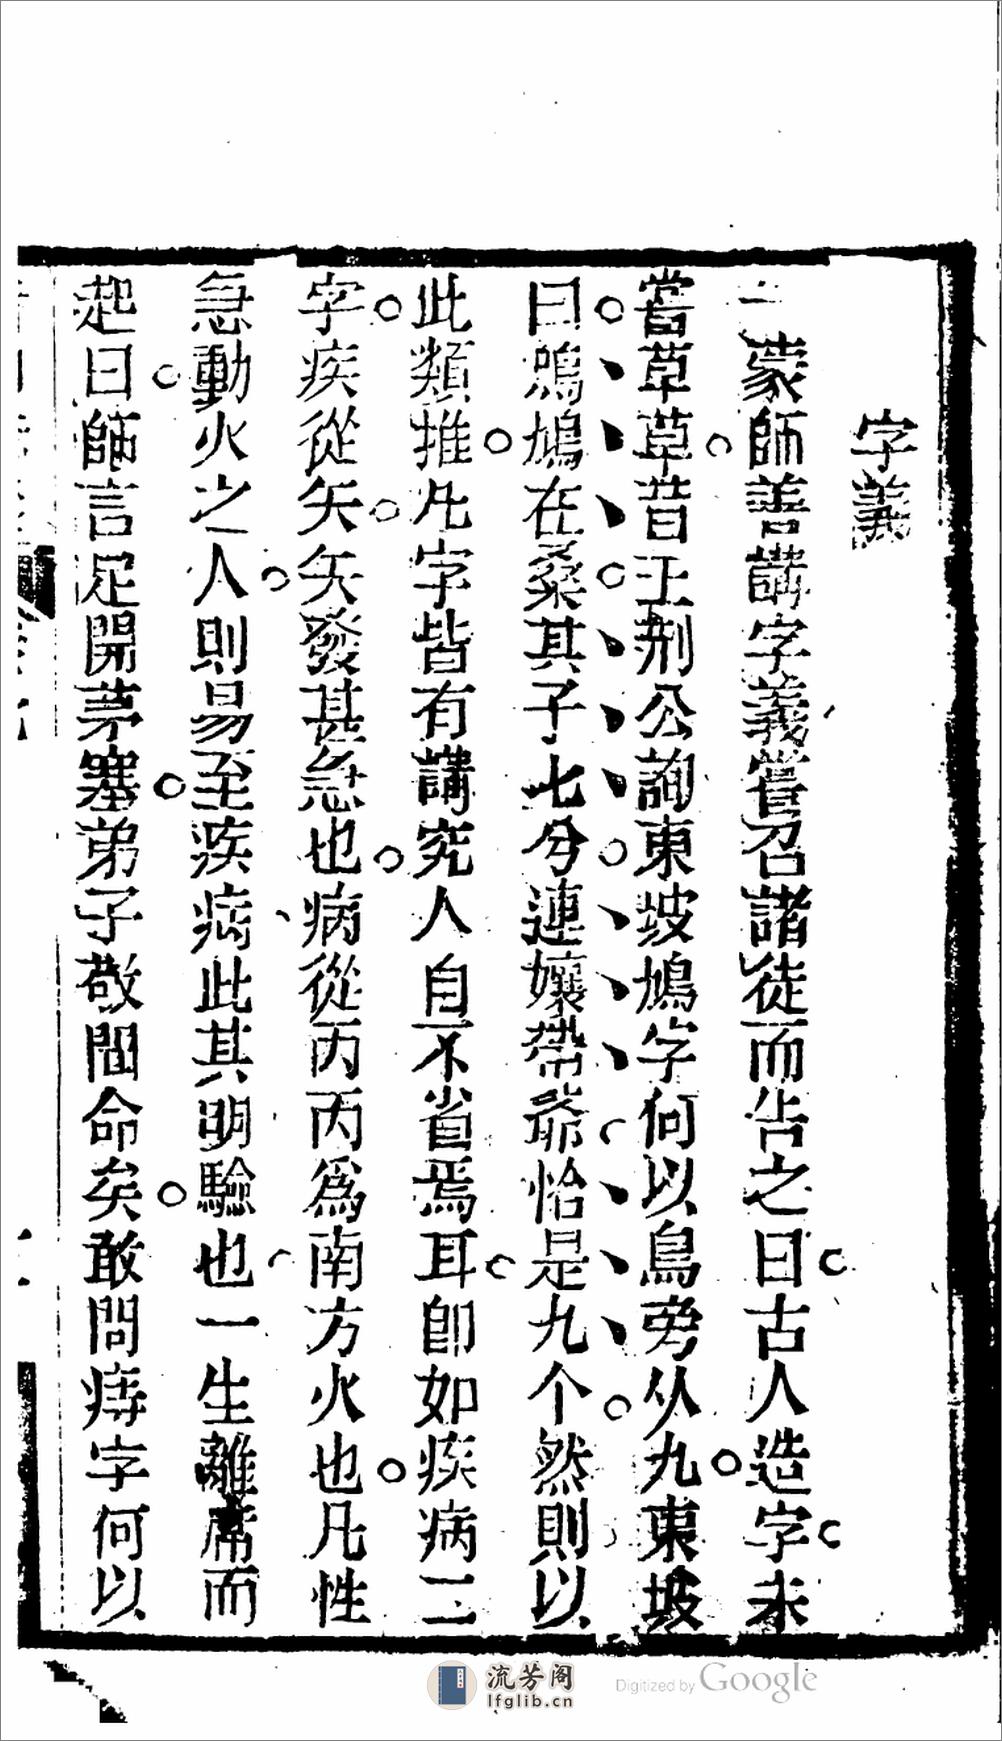 字義
一蒙師善講字義嘗召諸徒而告之曰古人造字未
嘗草草昔王荆公詢東坡鳩字何以鳥旁从九東坡
曰鳲鳩在桑其子七兮連孃帶爺恰是九个然則以
此類推凡字皆有講究人自不省焉耳卽如疾病二
字疾從矢矢發甚急也病從丙丙爲南方火也凡性
急動火之人則易至疾病此其明驗也一生離席而
起曰師言足開茅塞弟子敬聞命矣敢問痔字何以
流芳阁
lfglib.cn
Digitized by Google